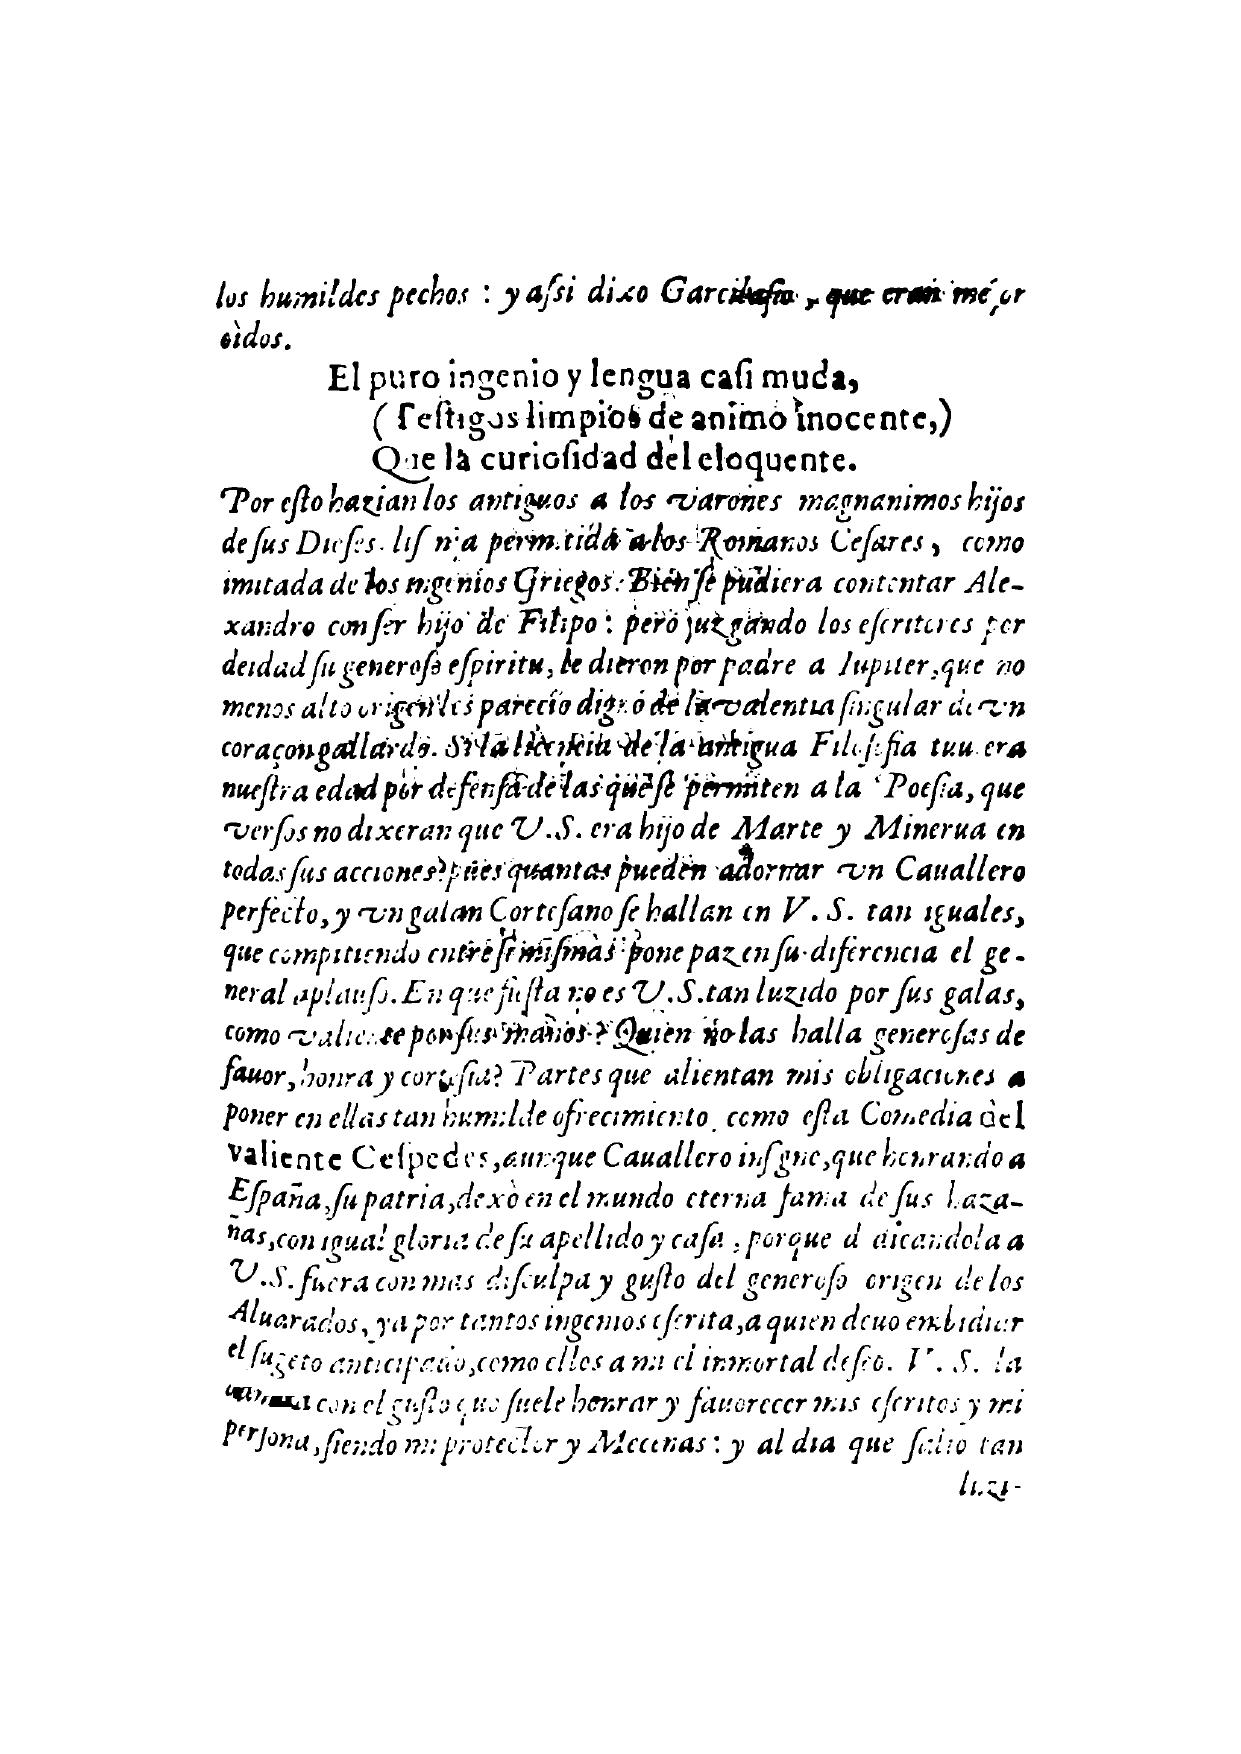 los humildes pechos : y aſsi dixo Garcilaſso, que eran mejor
oìdos.
El puro ingenio y lengua caſi muda,
(Teſtigos limpios de animo inocente,)
Que la curioſidad del eloquente.
Por eſto hazian los antiguos a los varones magnanimos hijos
de ſus Dioſes. liſonja permitida a los Romanos Ceſares, como
imitada de los ingenios Griegos: Bien ſe pudiera contentar Ale-
xandro con ſer hijo de Filipo : pero juzgando los eſcritores por
deidad ſu generoſo eſpiritu, le dieron por padre a Iupiter, que no
menos alto origen les parecio digno de la valentia ſingular de vn
coraçon gallardo. Si la licencia de la antigua Filoſofia tuuiera
nueſtra edad por defenſa de las que ſe permiten a la Poeſia, que
verſos no dixeran que V.S. era hijo de Marte y Minerua en
todas ſus acciones? pues quantas pueden adornar vn Cauallero
perfecto, y vn galan Corteſano ſe hallan en V. S. tan iguales,
que compitiendo entre ſi miſmas pone paz en ſu diferencia el ge-
neral aplauſo. En que fieſta no es V.S. tan luzido por ſus galas,
como valiente por ſus manos? Quien no las halla generoſas de
fauor, honra y corteſia? Partes que alientan mis obligaciones a
poner en ellas tan humilde ofrecimiento, como eſta Comedia del
valiente Ceſpedes, aunque Cauallero inſigne, que honrando a
Eſpaña, ſu patria, dexò en el mundo eterna fama de ſus haza-
ñas, con igual gloria de ſu apellido y caſa, porque dedicandola a
V.S. fuera con mas diſculpa y guſto del generoſo origen de los
Aluarados, ya por tantos ingenios eſcrita, a quien deuo embidiar
el ſugeto anticipado, como ellos a mi el inmortal deſeo. V. S. la
con el guſto que ſuele honrar y fauorecer mis eſcritos y mi
perſona, ſiendo mi protector y Mecenas : y al dia que ſalio tan
luzi-